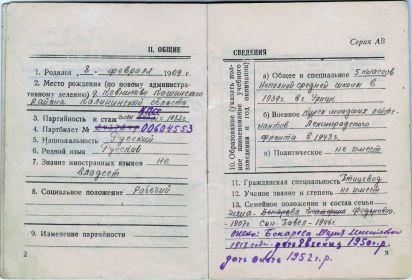 II. ОБЩИЕ
1. Родился 8. февраля 1909 г.
2. Место рождения (по новому администра-
тивному делению) д. Кашинского
района Калининской области
3. Партийность и стаж КПСС
4. Партбилет № 00604553
5. Национальность Русский
6. Родной язык Русский
7. Знание иностранных языков не
владеет
8. Социальное положение Рабочий
9. Изменение партийности
2
Серия АВ
СВЕДЕНИЯ
10. Образование (указать пол-
ное наименование учебного
заведения и год окончания)
а) Общее и специальное 5 классов
Неполной средней школы в
1939 г. в г. Урицк
б) Военное Курсы младших лейте-
нантов Ленинградского
фронта в 1943 г.
в) Политическое Не имеет
11. Гражданская специальность Птицевод
12. Ученое звание и степень не имеет
13. Семейное положение и состав семьи
жена Бокарева Екатерина Федоровна
1907 г. сын Павел - 1946 г.
жена: Бокарева Мария
1917 г. дочь 1950 г. р.
дочь Ольга 1952 г.
3